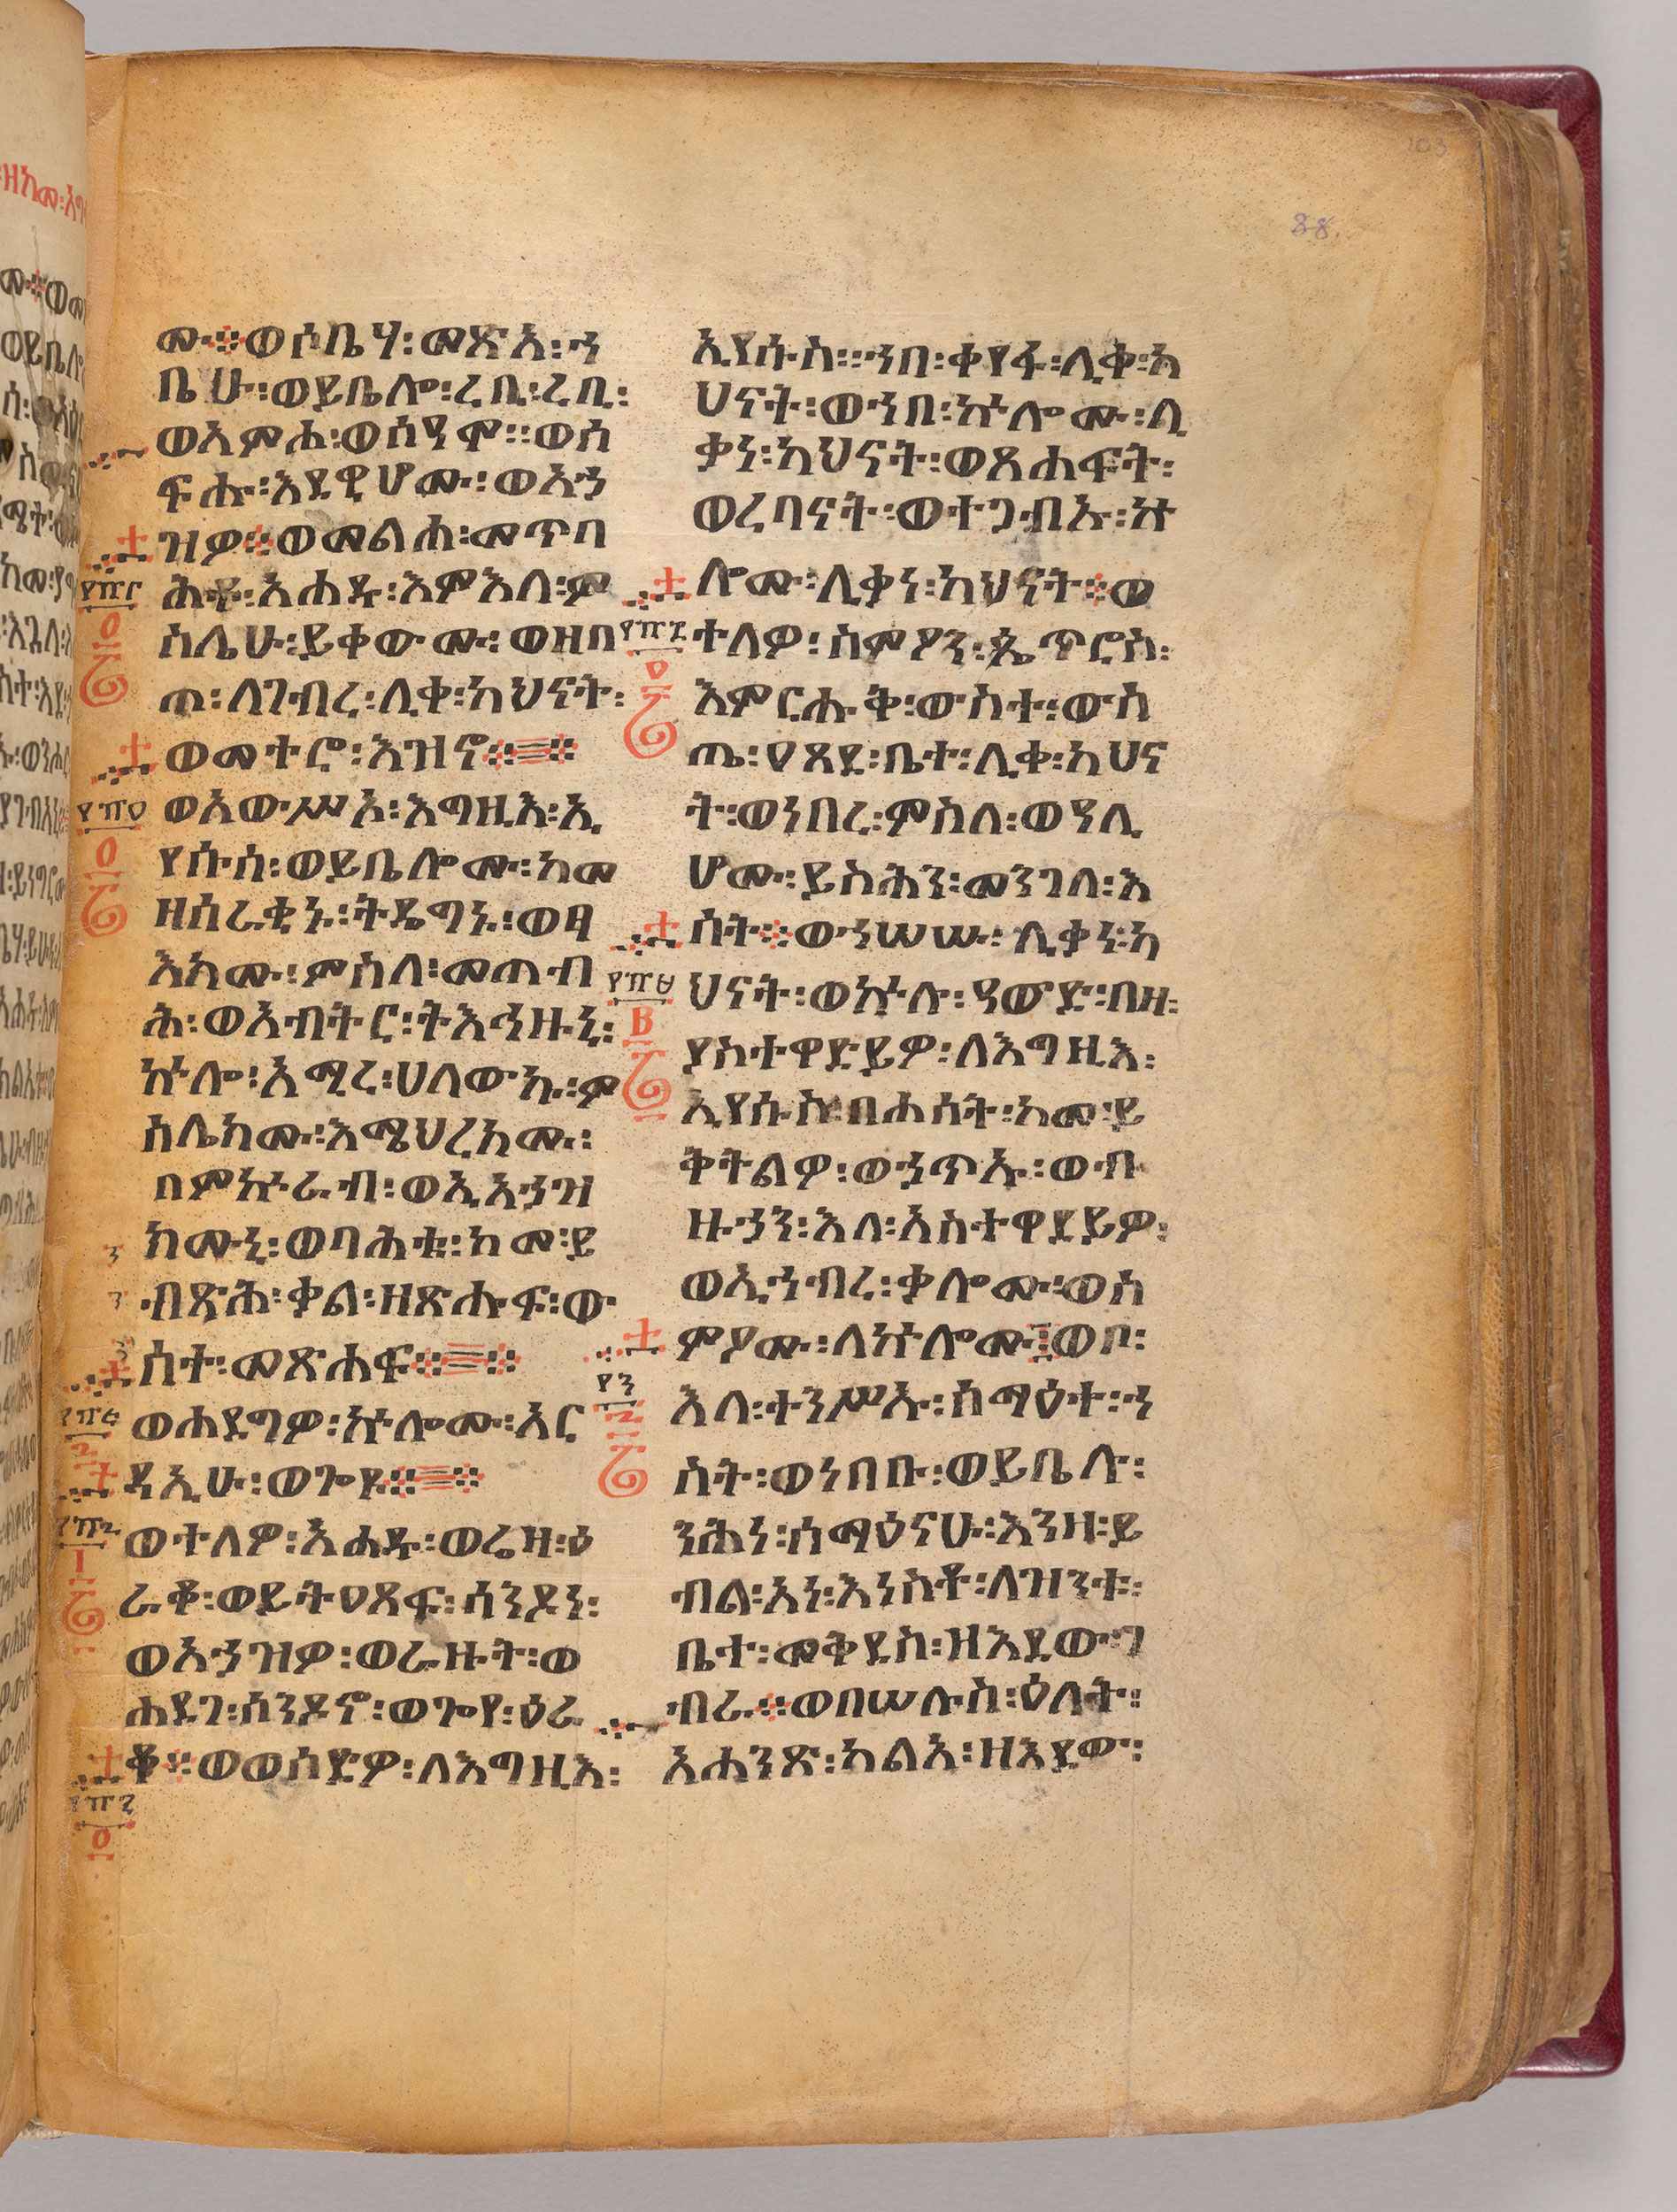 ሙ፨ወሶቤሃ፡መጽአ፡ኀ
ቤሁ፡ወይቤሎ፡ረቢ፡ረቢ፡
ወአምሐ፡ወሰዓሞ፡፡ወሰ
ፍሑ፡እደዊሆሙ፡ወአኀ
ዝዎ፨ወመልሐ፡መጥባ
ሕቶ፡አሐዱ፡እምእለ፡ም
ስሌሁ፡ይቀውሙ፡ወዘበ
ጠ፡ለገብረ፡ሊቀ፡ካህናት፡
ወመተሮ፡እዝኖ፨=፨
ወአውሥአ፡እግዚእ፡ኢ
የሱስ፡ወይቤሎሙ፡ከመ
ዘሰራቂኑ፡ትዴግኑ፡ወፃ
እክሙ፡ምስለ፡መጠብ
ሕ፡ወአብትር፡ትእኀዙኒ፡
ኵሎ፡አሚረ፡ሀለውኩ፡ም
ስሌክሙ፡እሜህረክሙ፡
በምኵራብ፡ወኢአኀዝ
ክሙኒ፡ወባሕቱ፡ከመ፡ይ
ብጽሕ፡ቃል፡ዘጽሑፍ፡ው
ስተ፡መጽሐፍ፨=፨
ወሐደግዎ፡ኵሎሙ፡አር
ዳኢሁ፡ወጐዩ፨=፨
ወተለዎ፡አሐዱ፡ወሬዛ፡ዕ
ራቆ፡ወይትዐጸፍ፡ሰንዶነ፡
ወአኀዝዎ፡ወራዙት፡ወ
ሐደገ፡ሰንዶኖ፡ወጐየ፡ዕራ
ቆ፨ወወሰድዎ፡ለእግዚእ፡
ኢየሱስ፡፡ኀበ፡ቀያፋ፡ሊቀ፡ካ
ህናት፡ወኀበ፡ኵሎሙ፡ሊ
ቃነ፡ካህናት፡ወጸሐፍት፡
ወረባናት፡ወተጋብኡ፡ኵ
ሎሙ፡ሊቃነ፡ካህናት፨ወ
ተለዎ፡ስምዖን፡ጴጥሮስ፡
እምርሑቅ፡ውስተ፡ውስ
ጤ፡ዐጸደ፡ቤተ፡ሊቀ፡ካህና
ት፡ወነበረ፡ምስለ፡ወዓሊ
ሆሙ፡ይስሕን፡መንገለ፡እ
ሳት፨ወኀሠሡ፡ሊቃነ፡ካ
ህናት፡ወኵሉ፡ዓውድ፡በዘ፡
ያስተዋድይዎ፡ለእግዚእ፡
ኢየሱስ፡በሐሰት፡ከመ፡ይ
ቅትልዎ፡ወኀጥኡ፡ወብ
ዙኃን፡እለ፡አስተዋደይዎ፡
ወኢኀብረ፡ቃሎሙ፡ወስ
ምዖሙ፡ለኵሎሙ፨ወቦ፡
እለ፡ተንሥኡ፡ሰማዕተ፡ኀ
ሰት፡ወነበቡ፡ወይቤሉ፡
ንሕነ፡ሰማዕናሁ፡እንዘ፡ይ
ብል፡አነ፡እነስቶ፡ለዝንቱ፡
ቤተ፡መቅደስ፡ዘእደው፡ገ
ብራ፨ወበሠሉስ፡ዕለት፡፡
አሐንጽ፡ካልአ፡ዘእደው፡